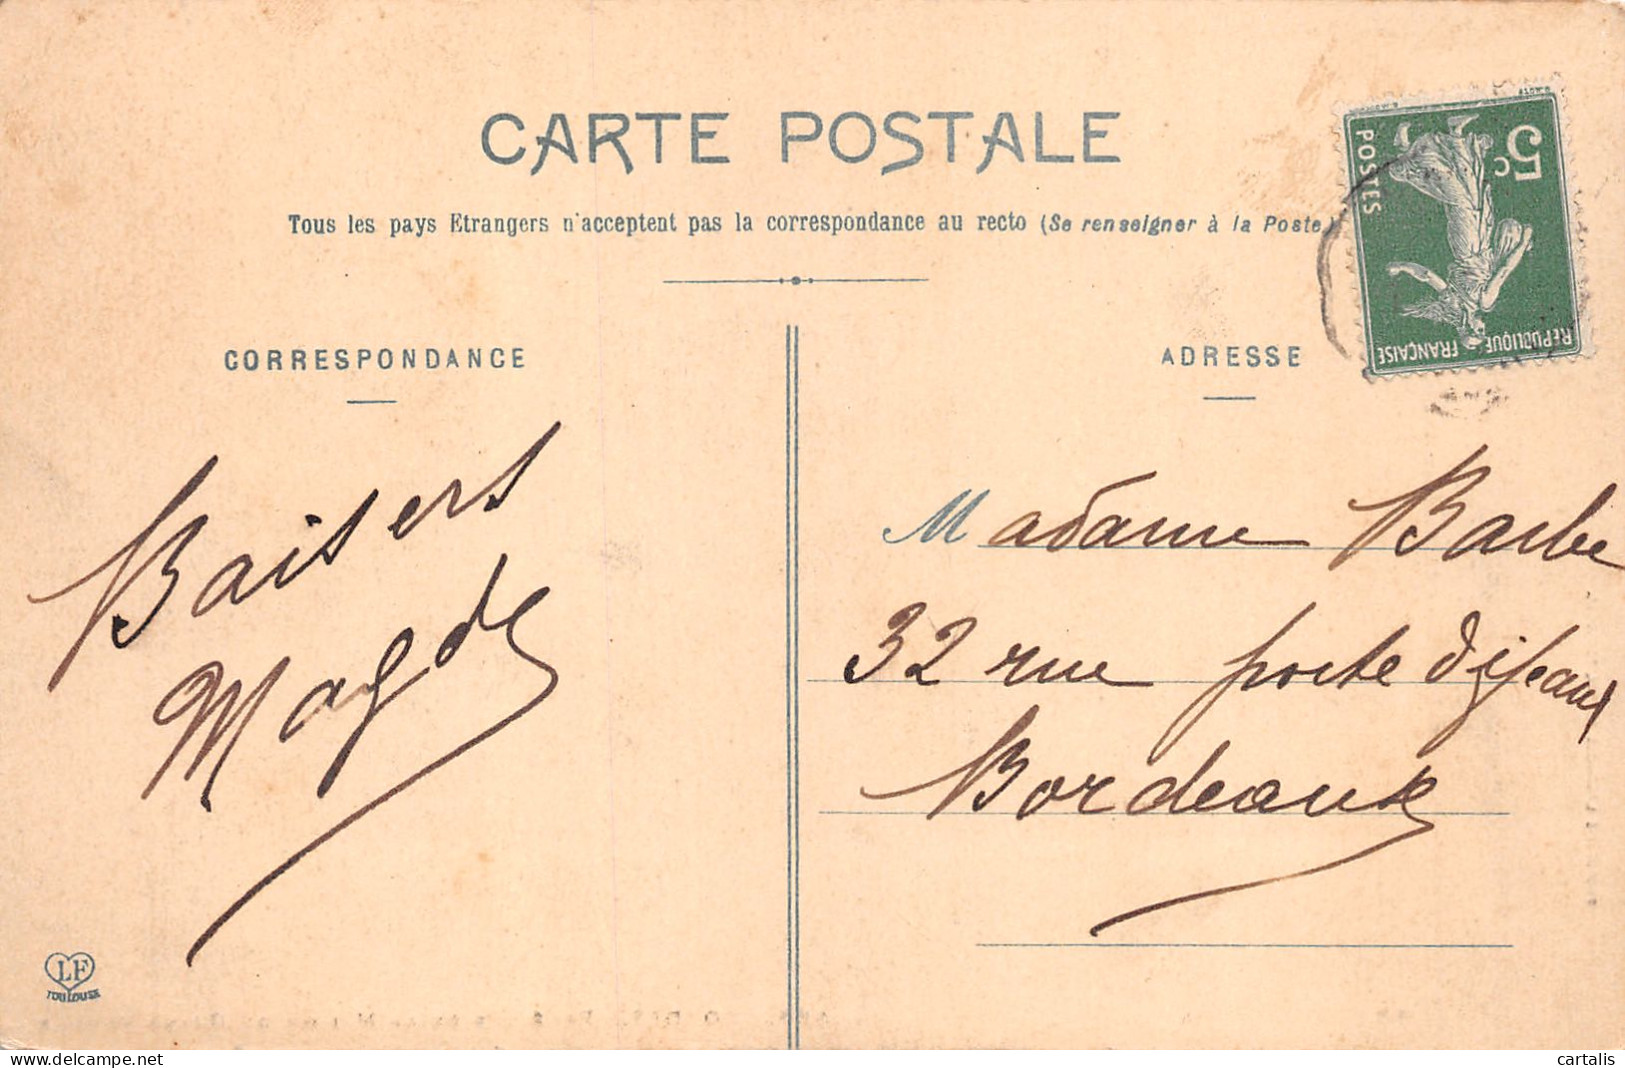 CARTE POSTALE
Tous les pays Etrangers n'acceptent pas la correspondance au recto (Se renseigner à la Poste)
5c
POSTES
REPUBLIQUE FRANÇAISE
CORRESPONDANCE
Baisers
Magde
LF
TOULOUSE
ADRESSE
Madame Barbe
32 rue porte dijeaux
Bordeaux
cartalis